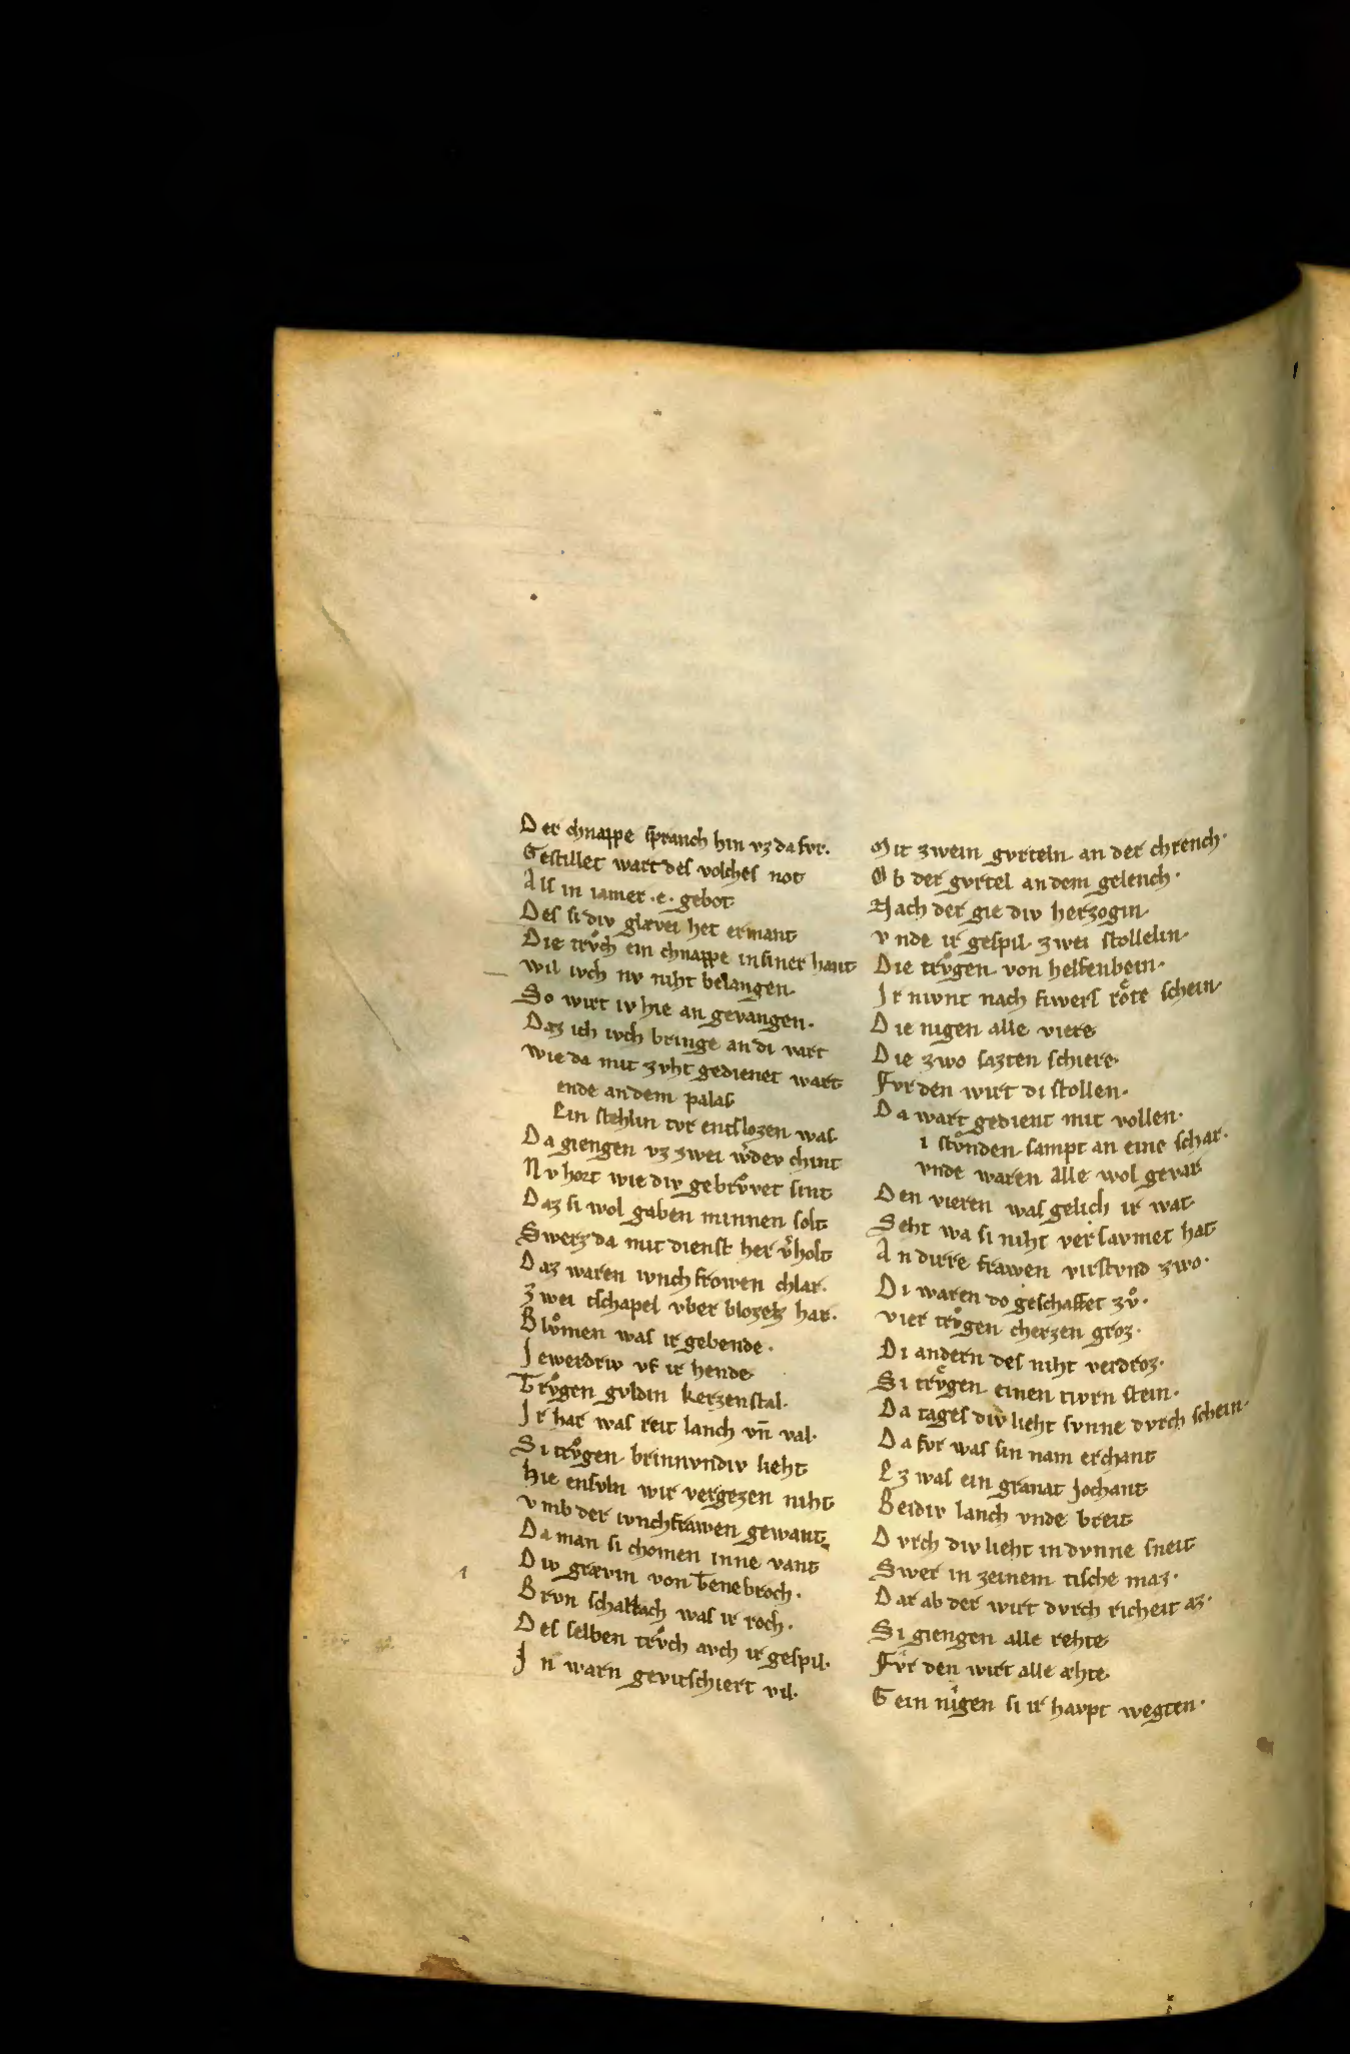 Der chnappe sprauch hin vz da fvr.
Gestillet wart des volches not
Als in iamer .e. gebot
Des si div glævei het ermant
Die trv̊ch ein chnappe in siner hant
wil ivch nv niht belangen
So wirt iv hie an gevangen.
Daz ich ivch bringe an di vart
wie da mit zvht gedienet wart
ende an dem palas
Ein stehlin tvr entslozen was
Da giengen vz zwei w̾dev chint
Nv hort wie div gebrv̊vet sint
Daz si wol gaben minnen solt
Swerz da mit dienst her v̾holt
Daz waren ivnchfrowen chlar.
Zwei tschapel vber blozez har.
Blv̊men was ir gebende.
Iewerdriv vf ir hende
Trv̊gen gvldin kerzenstal.
Ir har was reit lanch vn̄ val.
Si trv̊gen brinnvndiv lieht
Hie ensvln wir vergezen niht
vmb der ivnchfrawen gewant
Da man si chomen inne vant
Div grævin von Tenebroch.
Brvn scharlach was ir roch.
Des selben trv̊ch avch ir gespil.
In warn gevitschiert vil.
Mit zwein gvrteln an der chrench.
Ob der gvrtel an dem gelench.
Nach der gie div herzogin
vnde ir gespil zwei stollelin
Die trv̊gen von helfenbein.
Ir mvnt nach fiwers rœ̊te schein
Die nigen alle viere
Die zwo sazten schiere.
Fvr den wirt di stollen.
Da wart gedient mit vollen.
i stv̊nden sampt an eine schar.
vnde waren alle wol gevar
Den vieren was gelich ir wat
Seht wa si niht versavmet hat
Andirre frawen virstvnd zwo.
Di waren do geschaffet zv̊.
vier trv̊gen cherzen groz.
Di andern des niht verdroz.
Si trv̊gen einen tivrn stein.
Da tages div lieht svnne dvrch schein.
Da fvr was sin nam erchant
Ez was ein granat Jochant
Beidiv lanch vnde breit
Dvrch div lieht in dvnne sneit
Swer in zeinem tische maz.
Dar ab der wirt dvrch richeit az.
Si giengen alle rehte
Fvr den wirt alle æhte
Gein nigen si ir havpt wegten.